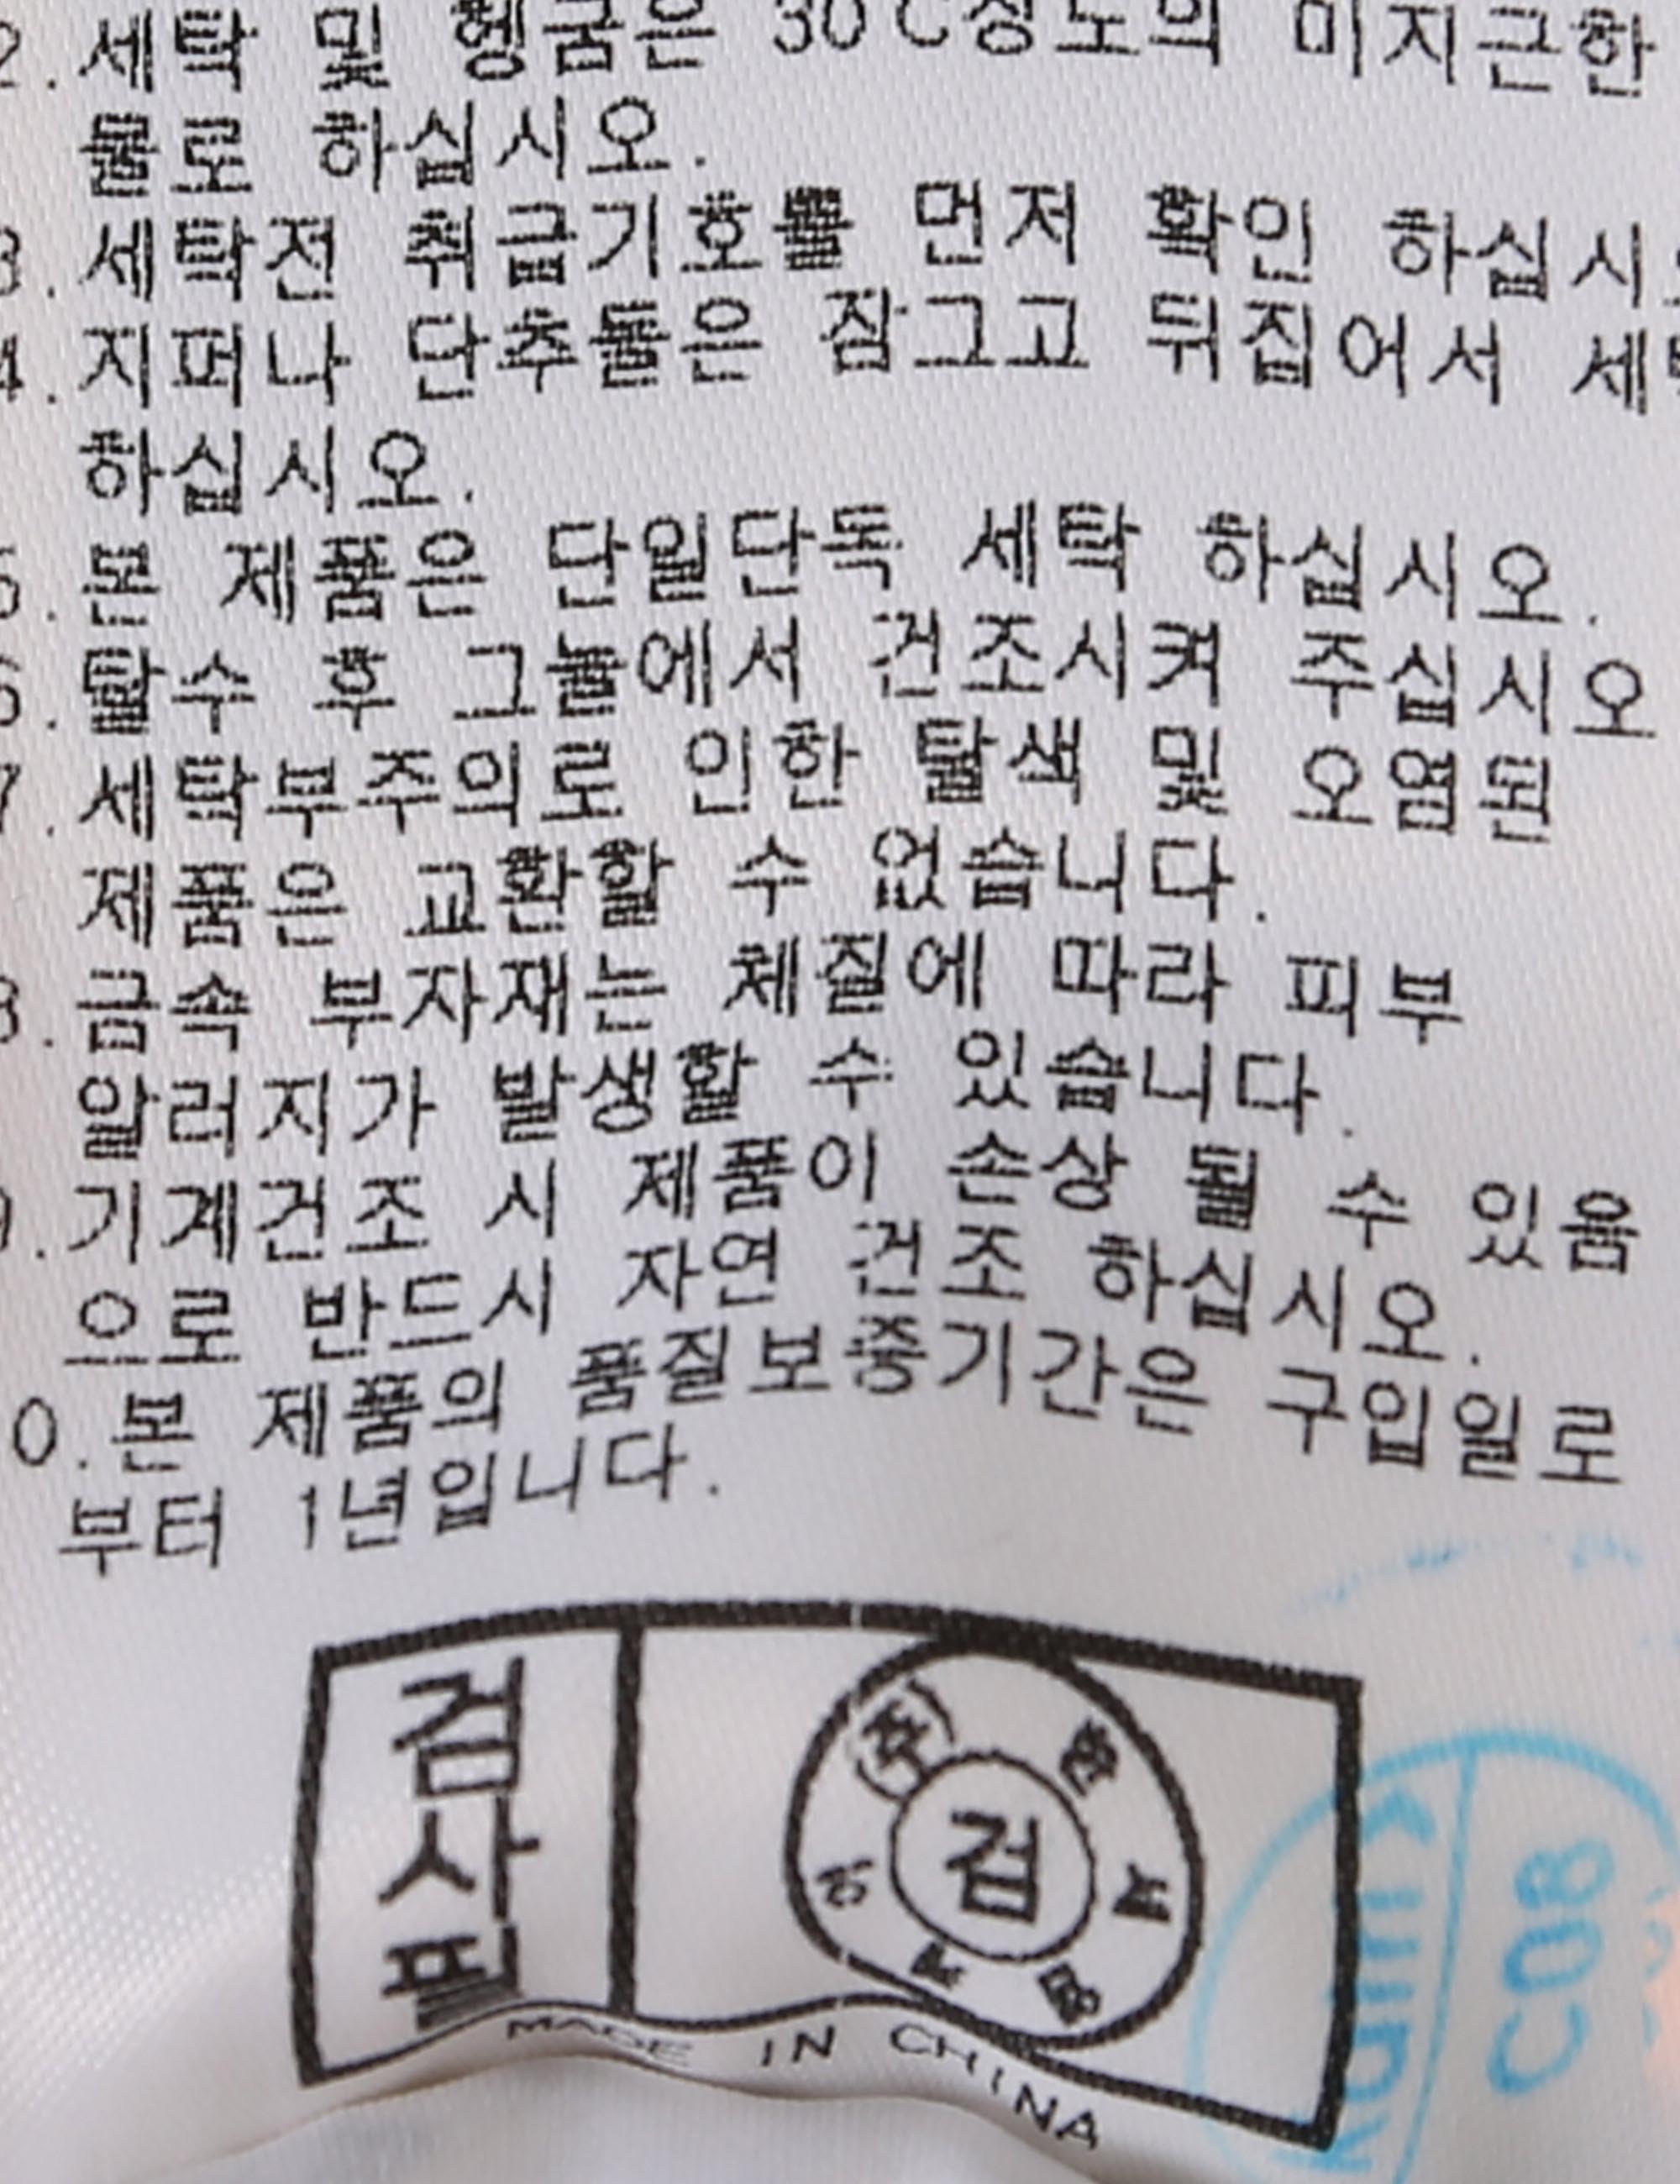 2. 세탁 및 헹굼은 30℃정도의 미지근한
물로 하십시오.
3. 세탁전 취급기호를 먼저 확인 하십시오
4. 지퍼나 단추들은 잠그고 뒤집어서 세탁
하십시오.
5. 본 제품은 단일단독 세탁 하십시오.
6. 탈수 후 그늘에서 건조시켜 주십시오
7. 세탁부주의로 인한 탈색 및 오염된
제품은 교환할 수 없습니다.
8. 금속 부자재는 체질에 따라 피부
알러지가 발생할 수 있습니다.
9. 기계건조 시 제품이 손상 될 수 있음
으로 반드시 자연 건조 하십시오.
0. 본 제품의 품질보증기간은 구입일로
부터 1년입니다.
검사필
(주)한
검
MADE IN CHINA
C08